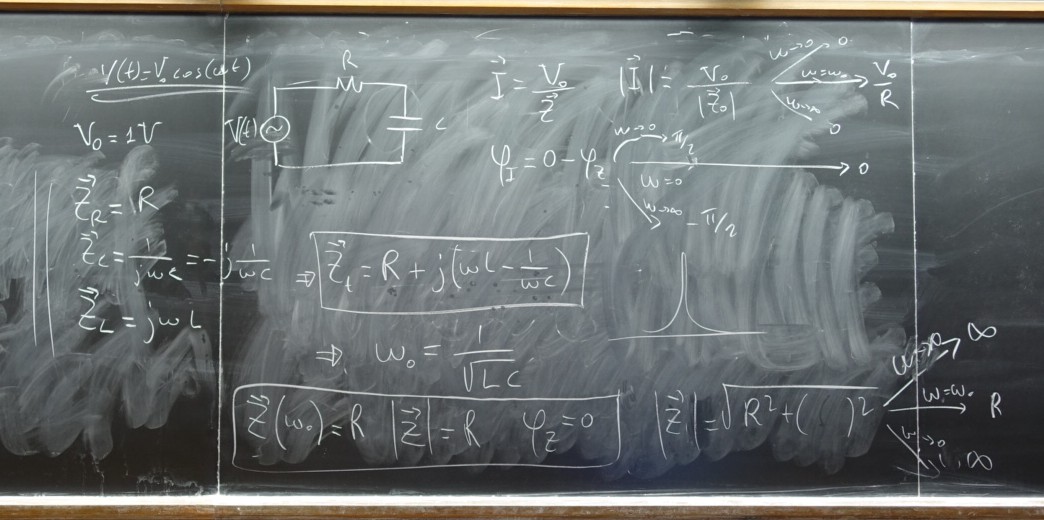 V(t)=V₀cos(ωt)
V₀=1V
Z⃗_R=R
Z⃗_C=1/jωC=-j1/ωC
Z⃗_L=jωL
R
V(t)
C
I⃗=V₀/Z⃗
|I⃗|=V₀/|Z⃗₀|
ω→0 0
ω=ω₀ V₀/R
ω→∞ 0
φ_I=0-φ_Z
ω→0 π/2
ω=0 0
ω→∞ -π/2
⇒ Z⃗_t=R+j(ωL-1/ωC)
⇒ ω₀=1/√LC
Z⃗(ω₀)=R |Z⃗|=R φ_Z=0
|Z⃗|=√R²+( )²
∞
ω=ω₀ R
ω→0 ∞